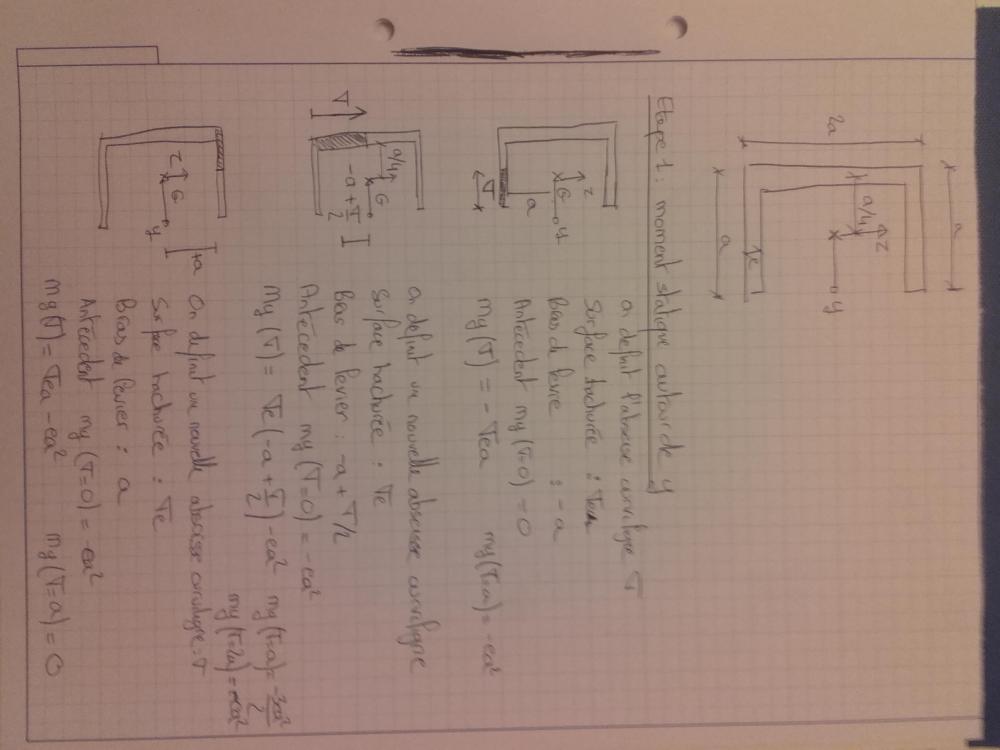 a
2a
a/4
z
y
a
e
Etape 1 : moment statique autour de y
on définit l'abscisse curviligne T
z
G
y
a
T
Surface hachurée : Te
Bras de levie : -a
Antécédent my(T=0) = 0
My(T) = -Tea my(T=a) = -ea²
on définit un nouvelle abscisse curviligne
T
a/4
G
-a + T/2
Surface hachurée : Te
Bras de levier : -a + T/2
Antécédent my(T=0) = -ea²
My(T) = Te(-a + T/2) - ea² my(T=a) = -3ea²/2
my(T=2a) = -ea²
On définit un nouvelle abscisse curviligne : T
z
G
y
+a
Surface hachurée : Te
Bras de levier : a
Antécédent my(T=0) = -ea²
My(T) = Tea - ea² My(T=a) = 0